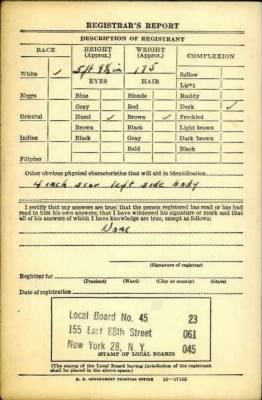 REGISTRAR'S REPORT
DESCRIPTION OF REGISTRANT
RACE HEIGHT (Approx.) WEIGHT (Approx.) COMPLEXION
White ✓ 5 ft 9½ in 175 Sallow
EYES HAIR Light
Negro Blue Blonde Ruddy
Gray Red Dark ✓
Oriental Hazel ✓ Brown ✓ Freckled
Brown Black Light brown
Indian Black Gray Dark brown
Bald Black
Filipino
Other obvious physical characteristics that will aid in identification
4 inch scar left side body
I certify that my answers are true; that the person registered has read or has had
read to him his own answers; that I have witnessed his signature or mark and that
all of his answers of which I have knowledge are true, except as follows:
None
(Signature of registrar)
Registrar for
(Precinct) (Ward) (City or county) (State)
Date of registration
Local Board No. 45 23
155 East 88th Street 061
New York 28, N. Y. 045
(STAMP OF LOCAL BOARD)
(The stamp of the Local Board having jurisdiction of the registrant
shall be placed in the above space.)
U. S. GOVERNMENT PRINTING OFFICE